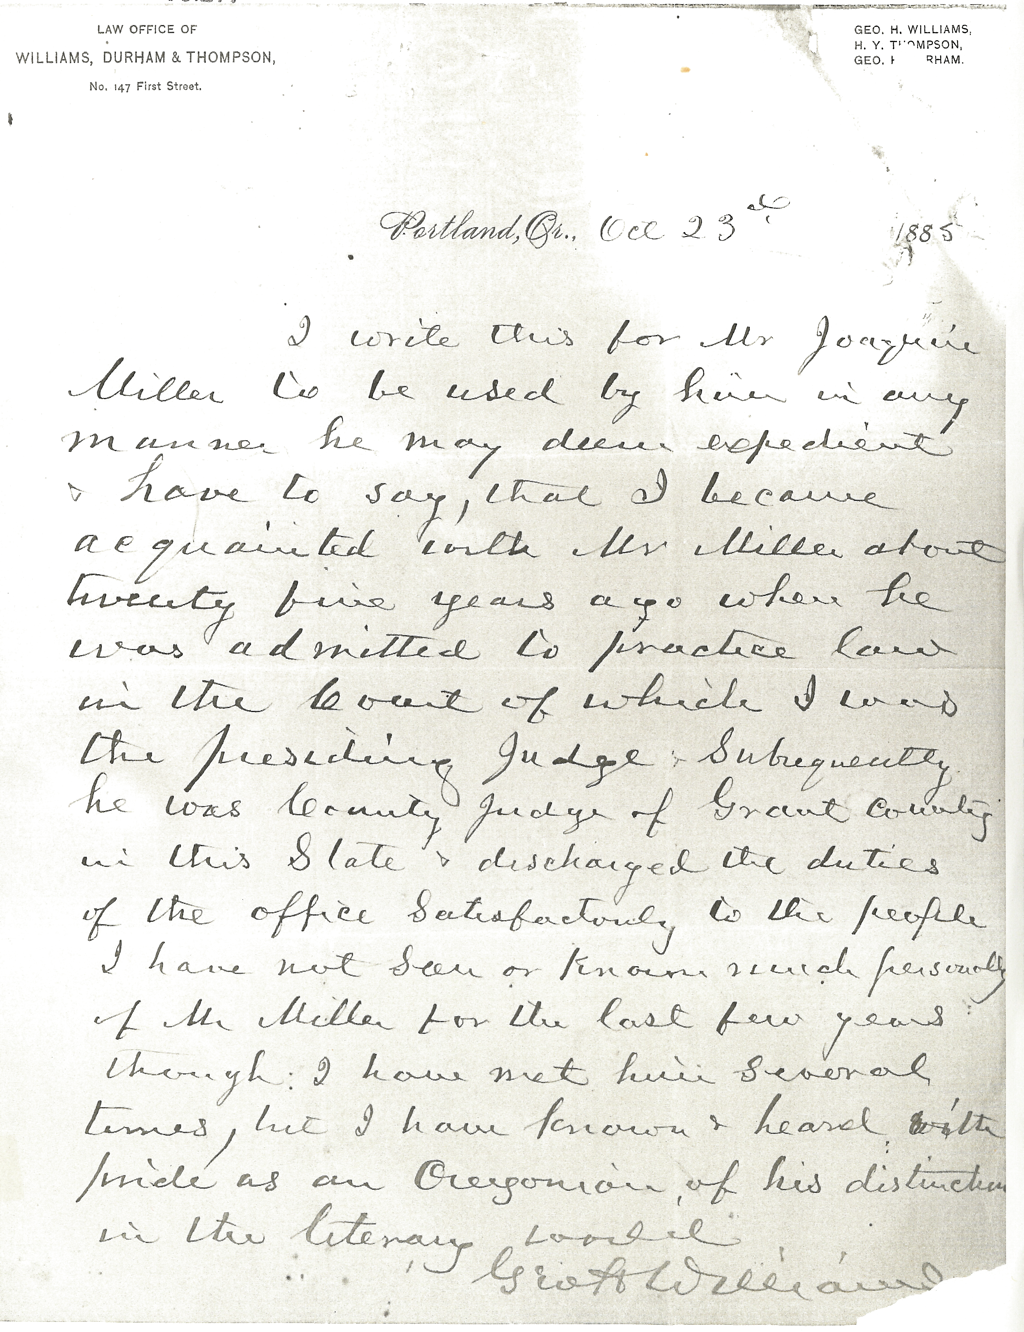 LAW OFFICE OF
WILLIAMS, DURHAM & THOMPSON,
No. 147 First Street.
GEO. H. WILLIAMS,
H. Y. THOMPSON,
GEO. H. DURHAM.
Portland, Or., Oct 23rd, 1885
I write this for Mr Joaquin
Miller to be used by him in any
manner he may deem expedient
& have to say, that I became
acquainted with Mr Miller about
twenty five years ago when he
was admitted to practice law
in the Court of which I was
the presiding Judge & Subsequently
he was County Judge of Grant County
in this State & discharged the duties
of the office Satisfactorily to the people
I have not Seen or Known much personally
of Mr Miller for the last few years
though I have met him Several
times, but I have known & heard with
pride as an Oregonian, of his distinction
in the literary world
Geo H Williams